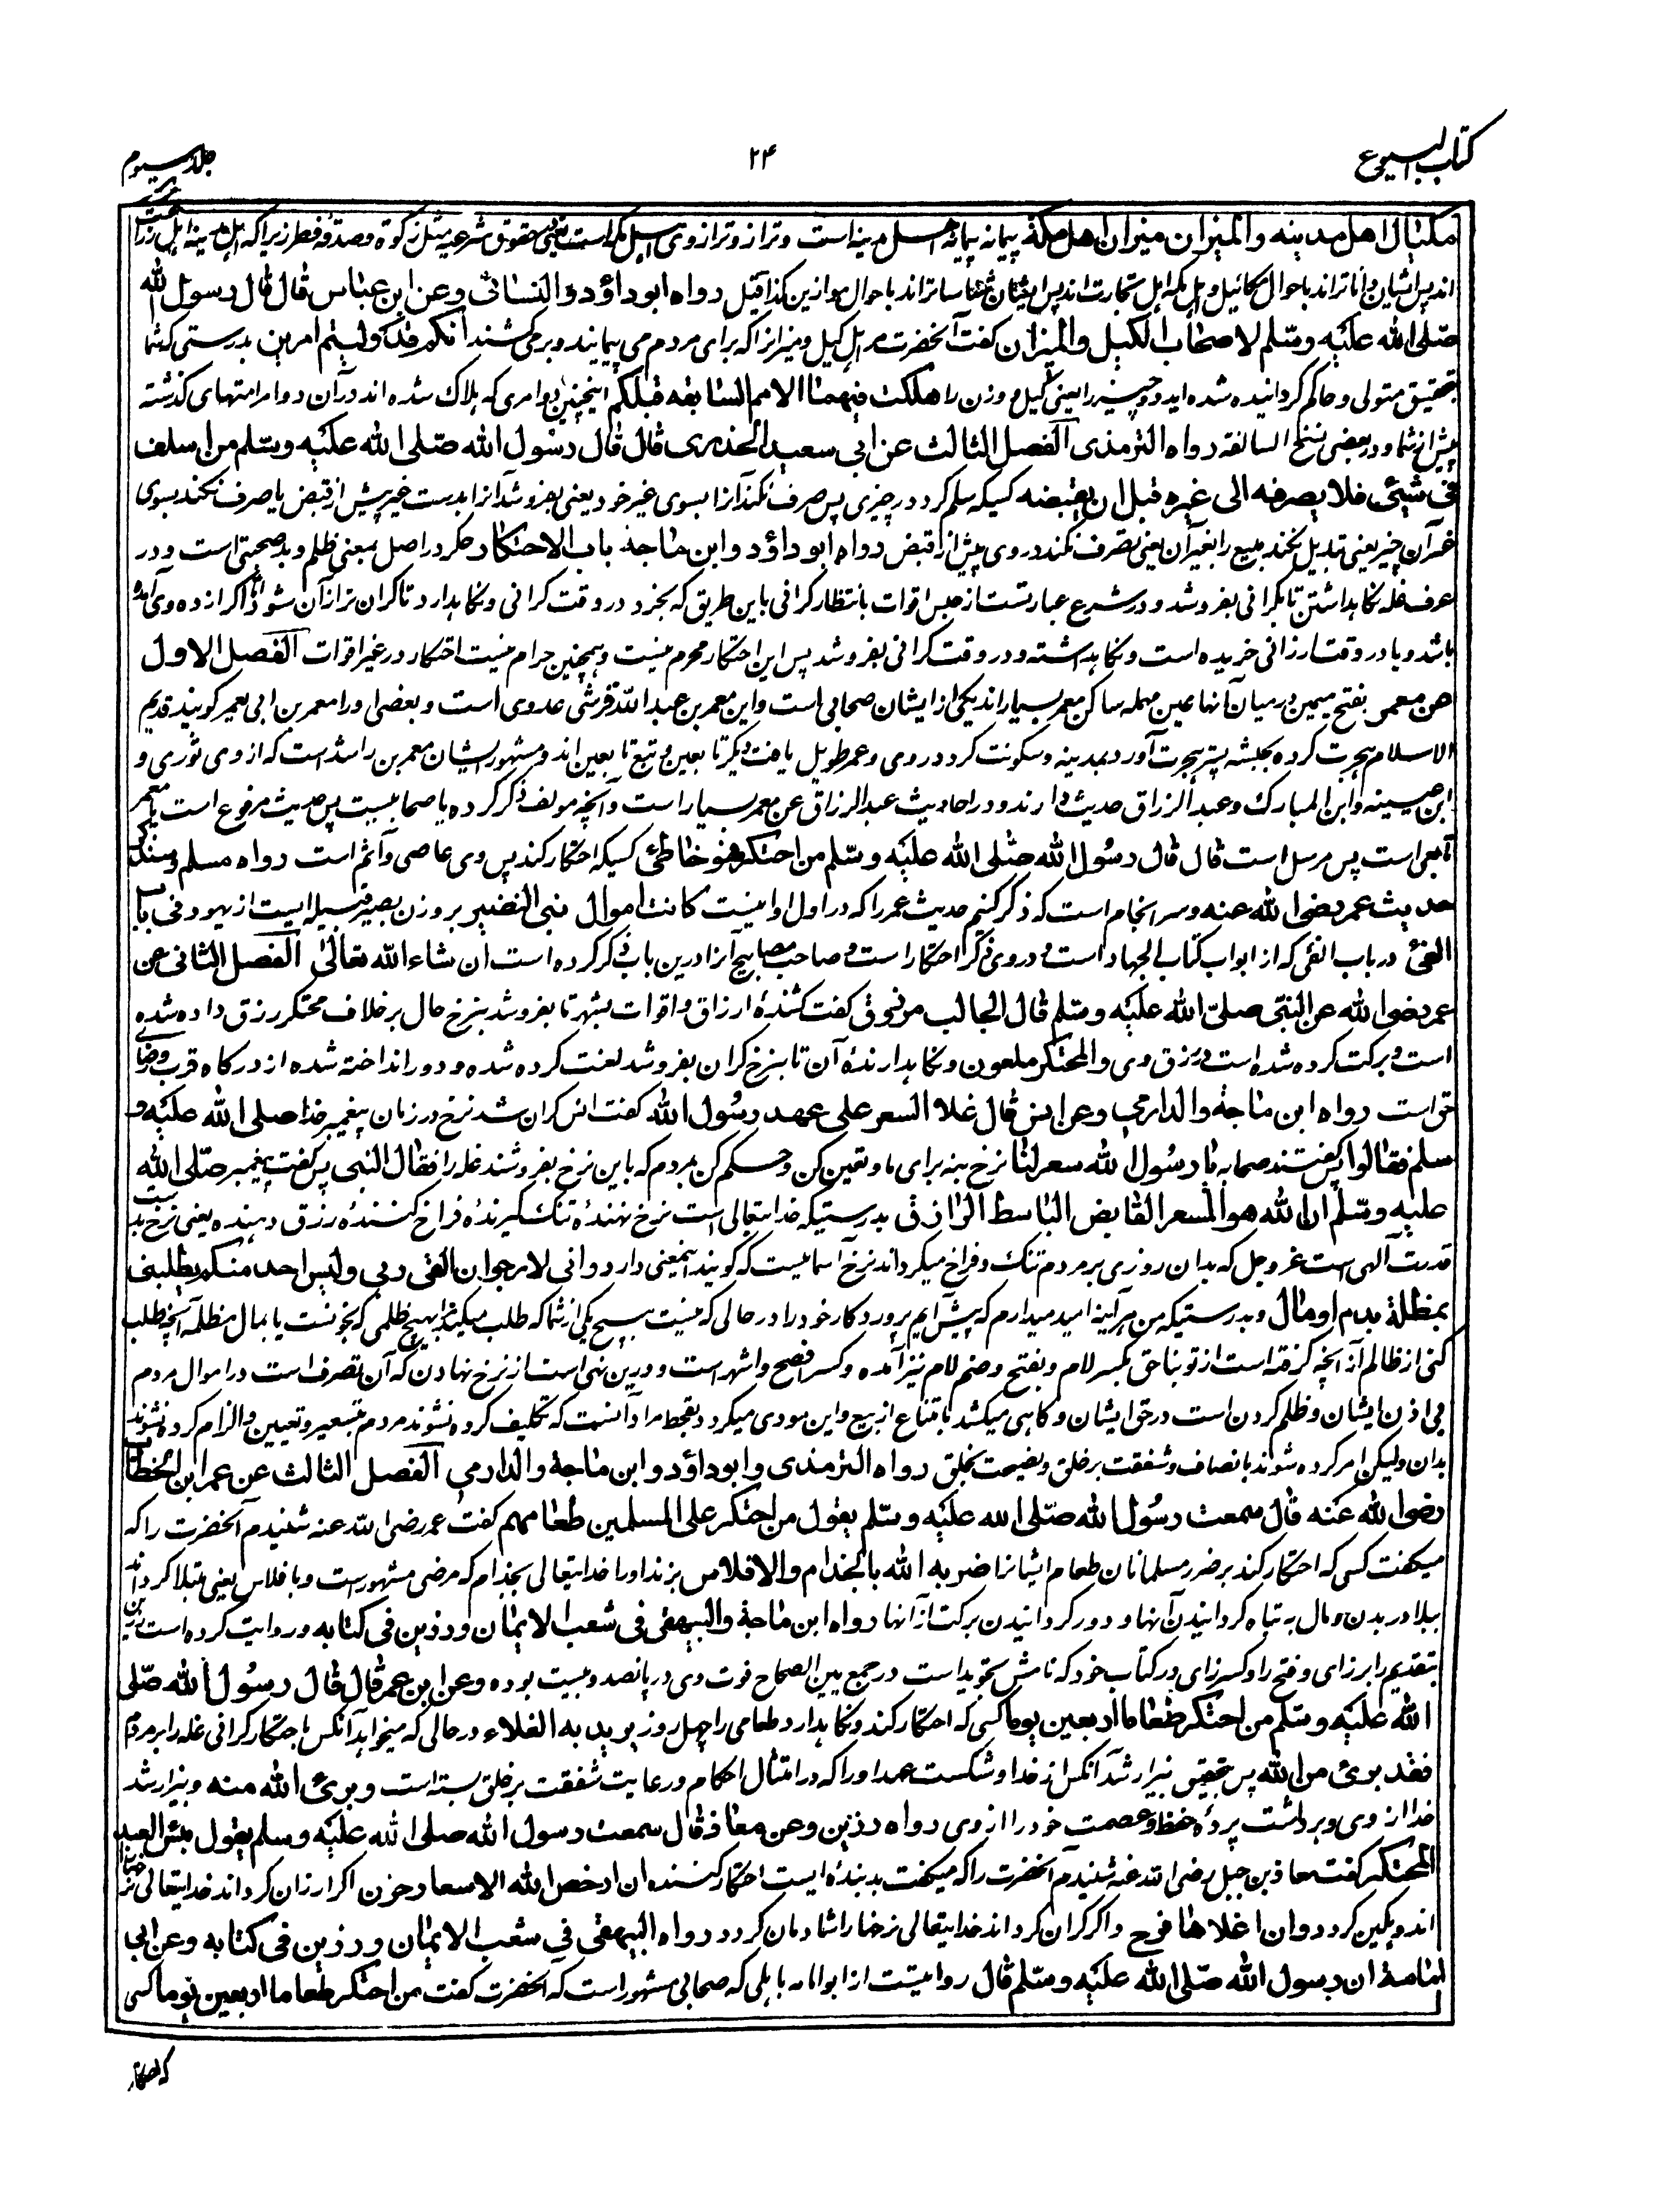 كتاب البيوع
۲۴
جلد سيوم
مكيال اهل مدينه والميزان ميزان اهل مكة پیمانه پیمانه اهل مدینه است و ترازو ترازوی اهل مکه است یعنی در حقوق شرعیه مثل زکوة و صدقهٔ فطر زیرا که اهل مدینه اهل زراعت
اند پس ایشان داناتراند باحوال مکائیل و اهل مکه اهل تجارت اند پس ایشان شناساتراند باحوال موازین کذا قیل رواه ابو داؤد والنسائی وعن ابن عباس قال قال رسول الله
صلی الله علیه وسلم لاصحاب الکیل والمیزان گفت آنحضرت مر اهل کیل و میزانرا که برای مردم می پیمایند و برمی کشند انکم قد ولیتم امرین بدرستی که شما
بتحقیق متولی و حاکم گردانیده شده اید دو چیز را یعنی کیل و وزن را هلکت فیهما الامم السابقه قبلکم اینچنین دو امری که هلاک شده اند در آن دو امر امتهای گذشته
پیش از شما و در بعضی نسخ السالفة رواه الترمذی الفصل الثالث عن ابی سعید الخدری قال قال رسول الله صلی الله علیه وسلم من اسلف
فی شیئ فلا یصرفه الی غیره قبل ان یقبضه کسیکه سلم کرد در چیزی پس صرف نکند آنرا بسوی غیر خود یعنی بفروشد آنرا بدست غیر پیش از قبض یا صرف نکند بسوی
غیر آن چیز یعنی تبدیل نکند مبیع را بغیر آن یعنی تصرف نکند در وی پیش از قبض رواه ابو داؤد وابن ماجه باب الاحتکار حکر در اصل بمعنی ظلم و بد صحبتی است و در
عرف غله نگاهداشتن تا بگرانی بفروشد و در شرع عبارتست از حبس اقوات بانتظار گرانی باین طریق که بخرد در وقت گرانی و نگاهدارد تا گران تر از آن شود اما اگر از ده وی آمده
باشد و یا در وقت ارزانی خریده است و نگاهداشته و در وقت گرانی بفروشد پس این احتکار محرم نیست و همچنین حرام نیست احتکار در غیر اقوات الفصل الاول
عن معمر بفتح میمین در میان آنها عین مهمله ساکن معمر بسیار اند یکی از ایشان صحابی است و این معمر بن عبدالله قرشی عدوی است و بعضی او را معمر بن ابی معمر گویند قدیم
الاسلام هجرت کرده بحبشه پستر هجرت آورد بمدینه و سکونت کرد در وی و عمر طویل یافت و دیگر تابعین و تبع تابعین اند و مشهور ایشان معمر بن راشد است که از وی ثوری و
ابن عیینه و ابن المبارک و عبد الرزاق حدیث دارند و در احادیث عبد الرزاق عن معمر بسیار است و آنچه مولف ذکر کرده یا صحابیست پس حدیث مرفوع است یا معمر
تابعی است پس مرسل است قال قال رسول الله صلی الله علیه وسلم من احتکر فهو خاطئ کسیکه احتکار کند پس وی عاصی و آثم است رواه مسلم وسنذکر
حدیث عمر رضی الله عنه و سر انجام است که ذکر کنیم حدیث عمر را که در اول او اینست کانت اموال بنی النضیر بر وزن بصیر قبیله ایست از یهود فی باب
الفئ در باب الفئ که از ابواب کتاب الجهاد است و در وی ذکر احتکار است و صاحب مصابیح آنرا درین باب ذکر کرده است ان شاء الله تعالی الفصل الثانی عن
عمر رضی الله عن النبی صلی الله علیه وسلم قال الجالب مرزوق گفت کشندهٔ ارزاق و اقوات بشهر تا بفروشد بنرخ حال بر خلاف محتکر رزق داده شده
است و برکت کرده شده است در رزق وی والمحتکر ملعون و نگاهدارندهٔ آن تا بنرخ گران بفروشد لعنت کرده شده و دور انداخته شده از درگاه قرب و رضای
حق است رواه ابن ماجة والدارمی وعن انس قال غلا السعر علی عهد رسول الله گفت انس گران شد نرخ در زمان پیغمبر خدا صلی الله علیه و
سلم فقالوا پس گفتند صحابه یا رسول الله سعر لنا نرخ بنه برای ما و تعین کن و حکم کن بمردم که باین نرخ بفروشند غله را فقال النبی پس گفت پیغمبر صلی الله
علیه وسلم ان الله هو المسعر القابض الباسط الرازق بدرستیکه خدایتعالی است نرخ نهندهٔ تنگ گیرندهٔ فراخ کنندهٔ رزق دهنده یعنی نرخ بدست
قدرت آلهی است عز وجل که بدان روزی بر مردم تنگ و فراخ میگرداند نرخ آسمانیست که گویند اینمعنی دارد وانی لارجو ان القی ربی ولیس احد منکم یطلبنی
بمظلمة بدم او مال و بدرستیکه من هر آینه امید میدارم که پیش آیم پروردگار خود را در حالی که نیست هیچ یکی از شما که طلب میکند مرا بهیچ ظلمی که بخونست یا بمال مظلمه آنچه طلب
کنی از ظالم از آنچه گرفته است از تو بناحق بکسر لام و بفتح و ضم لام نیز آمده و کسر افصح و اشهر است و درین نهی است از نرخ نهادن که آن تصرف است در اموال مردم
بی اذن ایشان و ظلم کردن است در حق ایشان و گاهی میکشد بامتناع از بیع و این مودی میگردد بقحط مراد آنست که تکلیف کرده نشوند مردم بتسعیر و تعیین و الزام کرده نشوند
بدان ولیکن امر کرده شوند بانصاف و شفقت بر خلق و نصیحت بخلق رواه الترمذی وابوداؤد وابن ماجة والدارمی الفصل الثالث عن عمر ابن الخطاب
رضی الله عنه قال سمعت رسول الله صلی الله علیه وسلم یقول من احتکر علی المسلمین طعامهم گفت عمر رضی الله عنه شنیدم آنحضرت را که
میگفت کسی که احتکار کند بر ضرر مسلمانان طعام ایشانرا ضربه الله بالجذام والافلاس بزند او را خدایتعالی بجذام که مرضی مشهور است و بافلاس یعنی مبتلا گرداند
ببلا در بدن و مال به تباه گردانیدن آنها و دور گردانیدن برکت از آنها رواه ابن ماجة والبیهقی فی شعب الایمان ورزین فی کتابه و روایت کرده است رزین
بتقدیم را بر زای و فتح را و کسر زای در کتاب خود که نامش تجوید است در جمع بین الصحاح فوت وی در پانصد و بیست بوده وعن ابن عمر قال قال رسول الله صلی
الله علیه وسلم من احتکر طعاما اربعین یوما کسی که احتکار کند و نگاهدارد طعامی را چهل روز یرید به الغلاء در حالی که میخواهد آنکس باحتکار گرانی غله را بر مردم
فقد برئ من الله پس بتحقیق بیزار شد آنکس از خدا و شکست عهد او را که در امتثال احکام و رعایت شفقت بر خلق بسته است وبرئ الله منه و بیزار شد
خدا از وی و برداشت پردهٔ حفظ و عصمت خود را از وی رواه رزین وعن معاذ قال سمعت رسول الله صلی الله علیه وسلم یقول بئس العبد
المحتکر گفت معاذ بن جبل رضی الله عنه شنیدم آنحضرت را که میگفت بد بندهٔ ایست احتکار کننده ان ارخص الله الاسعار حزن اگر ارزان گرداند خدایتعالی نرخها را
اندوهگین گردد وان اغلاها فرح و اگر گران گرداند خدایتعالی نرخها را شادمان گردد رواه البیهقی فی شعب الایمان ورزین فی کتابه وعن ابی
امامة ان رسول الله صلی الله علیه وسلم قال روایتست از ابو امامه باهلی که صحابی مشهور است که آنحضرت گفت من احتکر طعاما اربعین یوما کسی
که احتکار